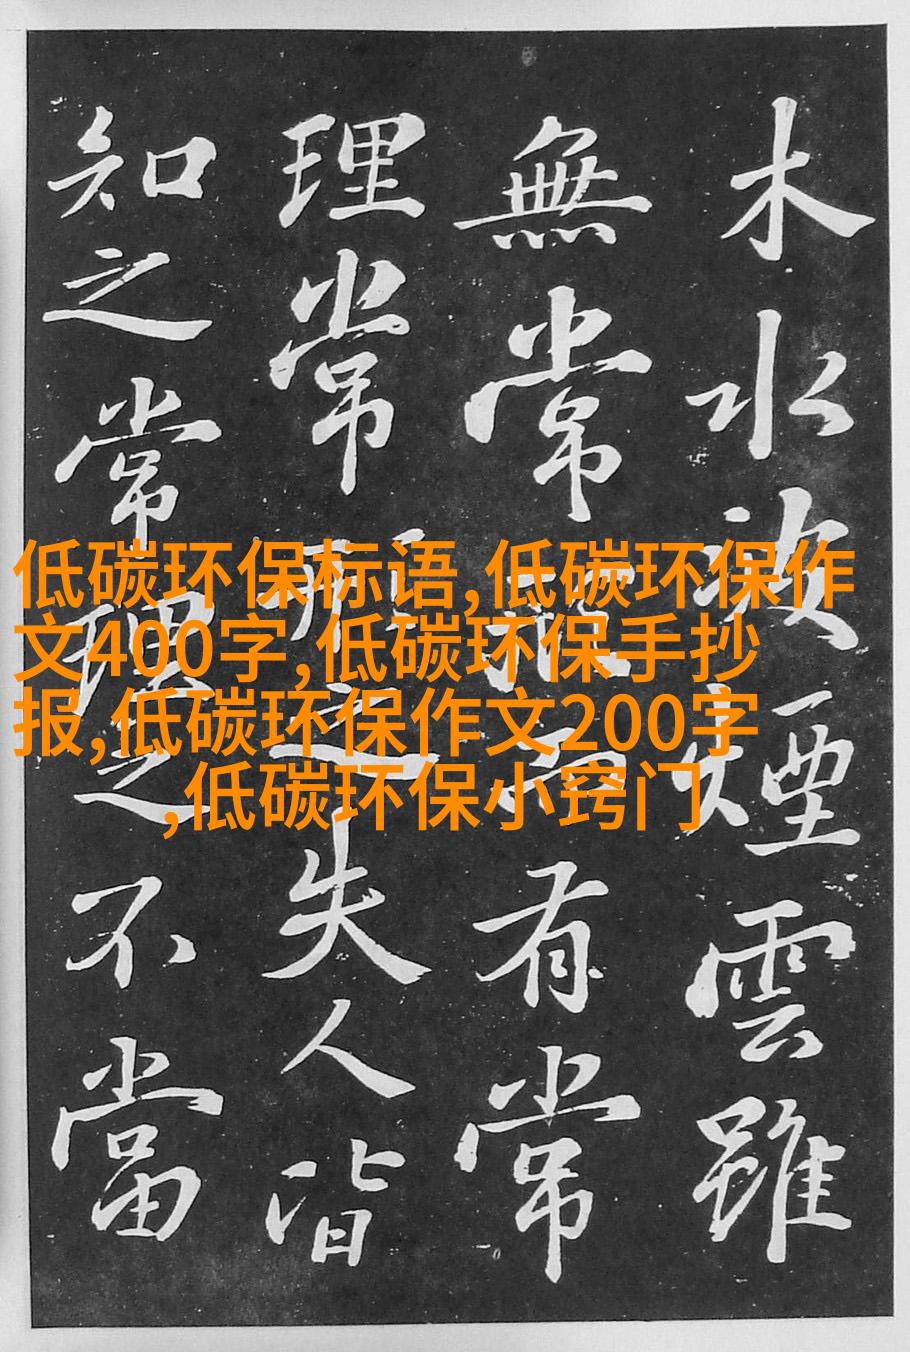 木水波煙雲雖
無常形而有常
理常形之失人皆
知之常理之不當
低碳环保标语,低碳环保作
文400字,低碳环保手抄
报,低碳环保作文200字
,低碳环保小窍门